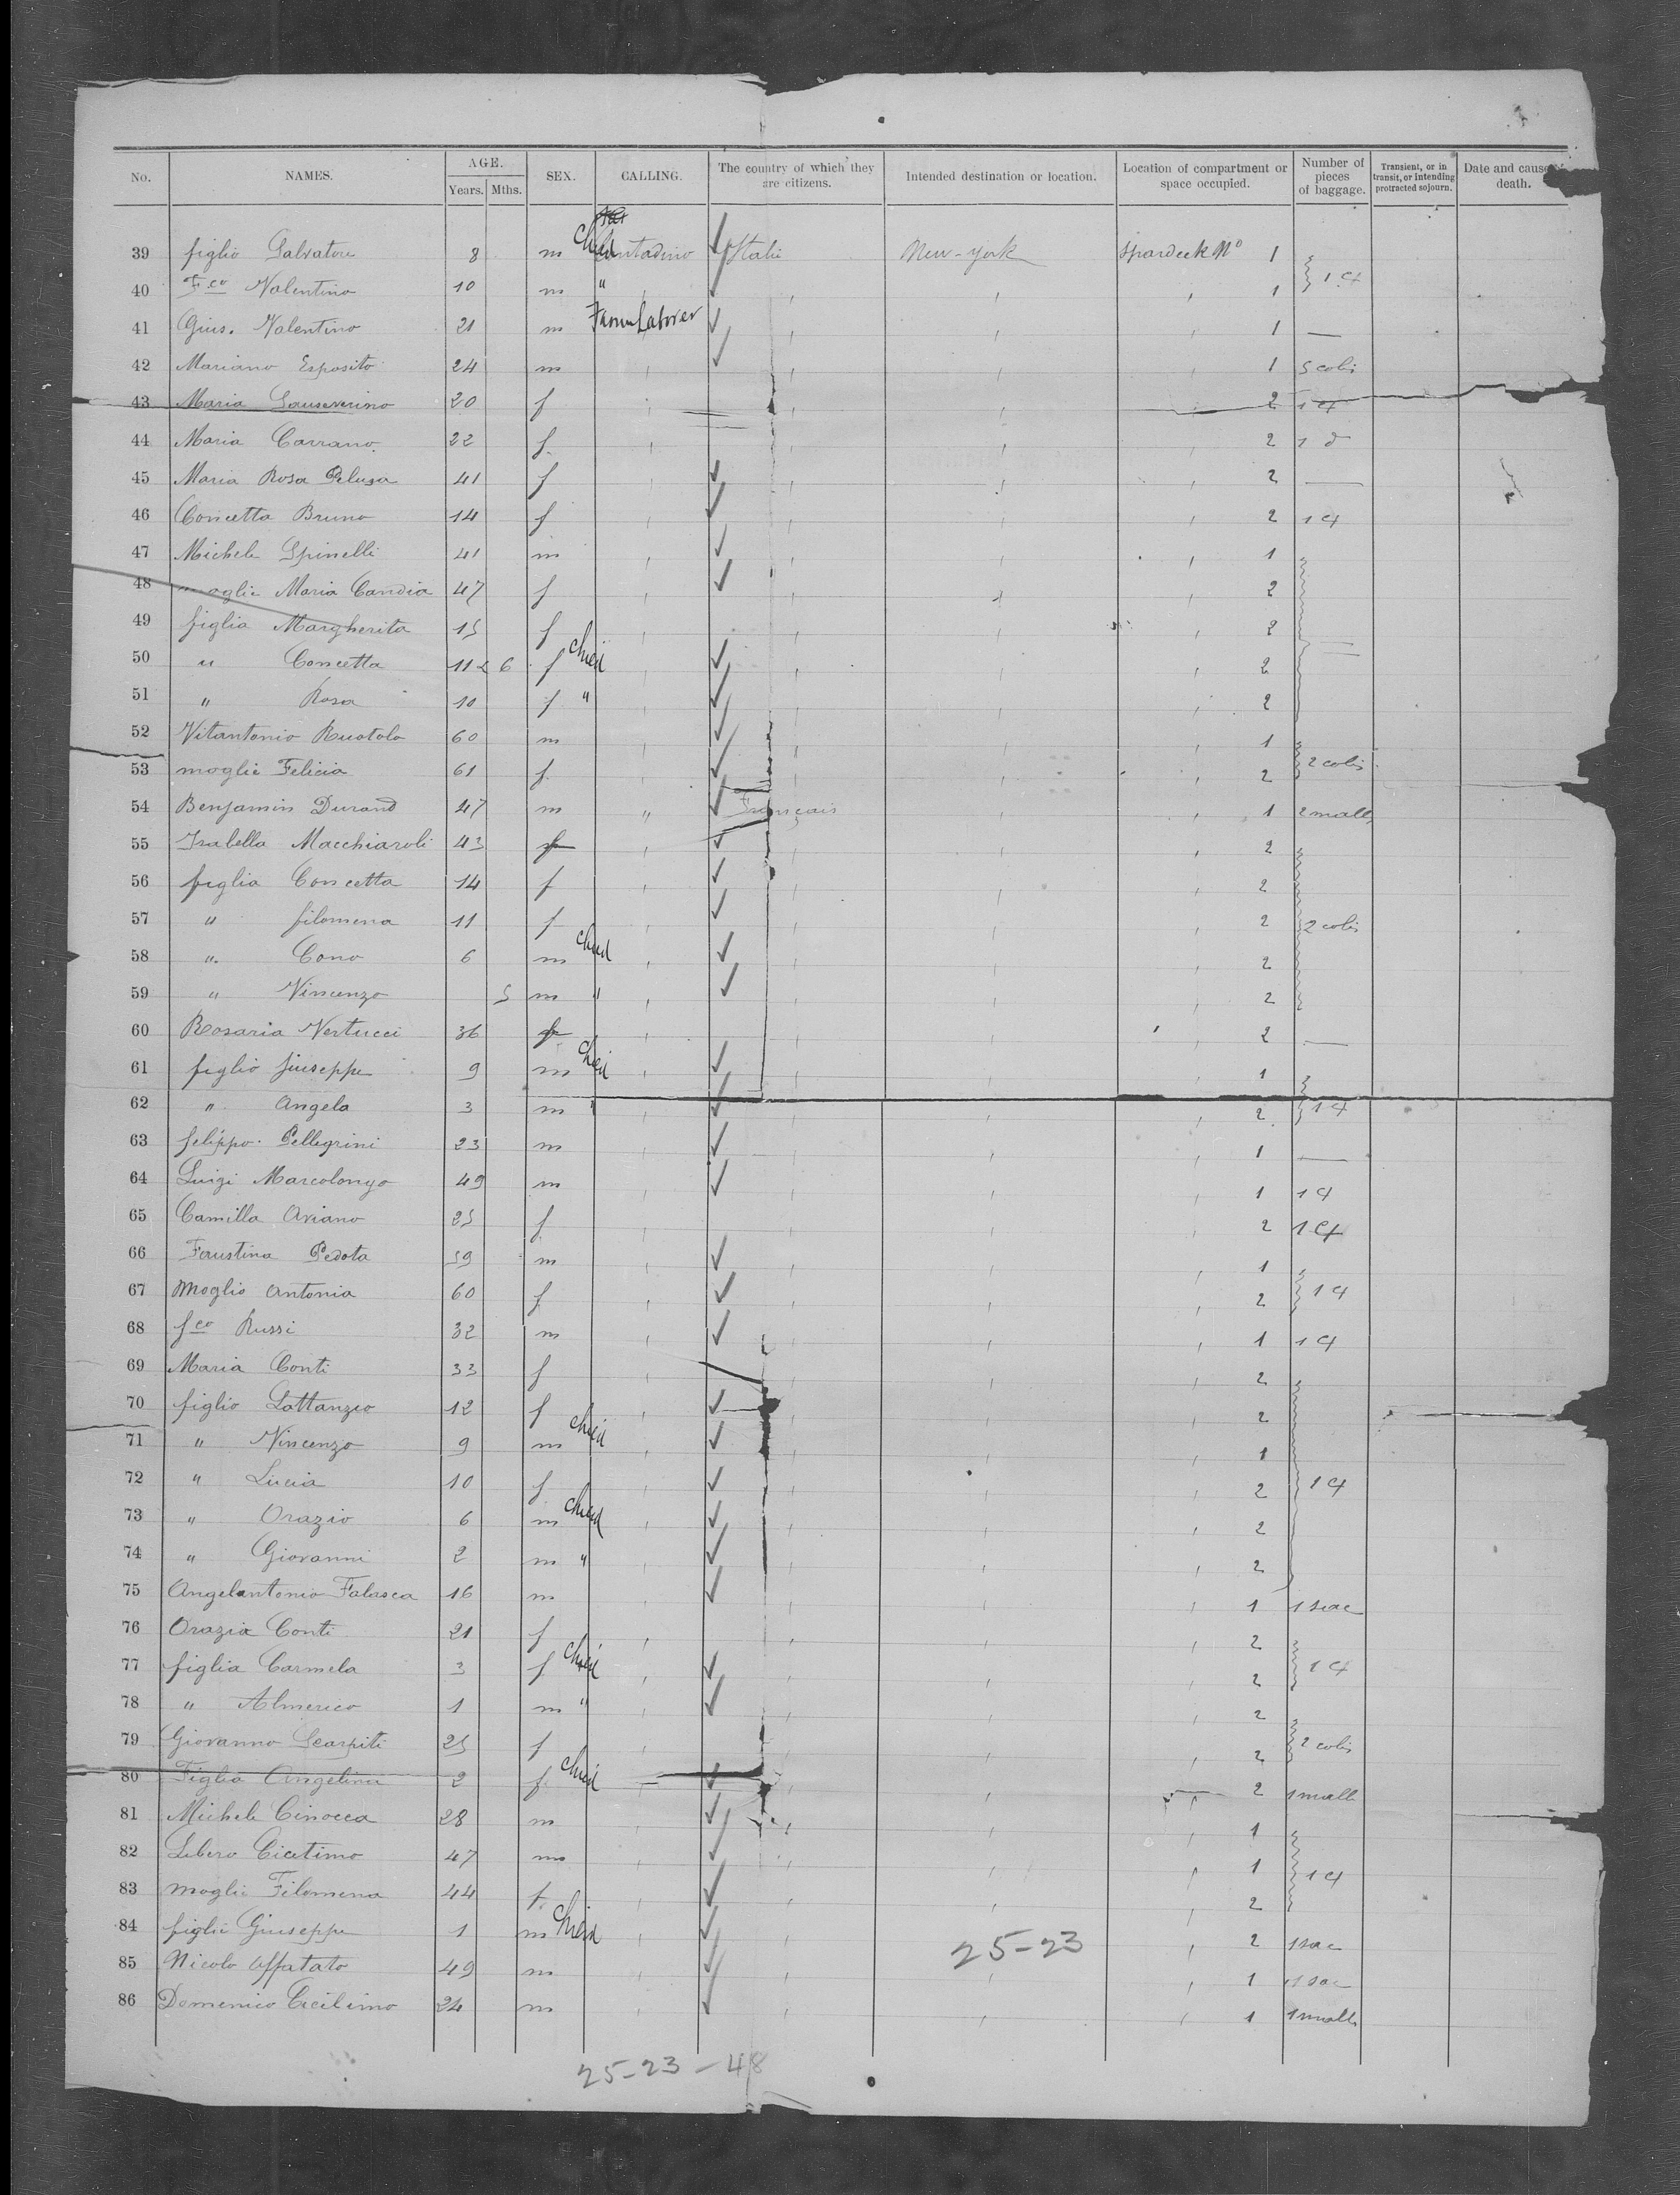 No. NAMES. AGE. Years. Mths. SEX. CALLING. The country of which they are citizens. Intended destination or location. Location of compartment or space occupied. Number of pieces of baggage. Transient, or in transit, or intending protracted sojourn. Date and cause death.
39 figlio Salvatore 8 m Child Contadino Italie New-york Spardeck No 1
40 Fco Valentino 10 m " 1 1 Ct
41 Gius. Valentino 21 m Farm Laborer 1 —
42 Mariano Esposito 24 m 1 5 colis
43 Maria Sanseverino 20 f 2 1 Ct
44 Maria Carrano 22 f 2 1 d
45 Maria Rosa Pelusa 41 f 2 —
46 Concetta Bruno 14 f 2 1 Ct
47 Michele Spinelli 41 m 1
48 moglie Maria Candia 47 f 2
49 figlia Margherita 15 f 2 —
50 " Concetta 11 6 f Child 2
51 " Rosa 10 f " 2
52 Vitantonio Ruotolo 60 m 1
53 moglie Felicia 61 f 2 2 colis
54 Benjamin Durand 47 m " Français 1 2 malls
55 Isabella Macchiaroli 43 f 2
56 figlia Concetta 14 f 2
57 " filomena 11 f 2 2 colis
58 " Cono 6 m Child 2
59 " Vincenzo 5 m " 2
60 Rosaria Vertucci 36 f 2 —
61 figlio Giuseppe 9 m Child 1
62 " Angelo 3 m " 2 1 Ct
63 felippo Pellegrini 23 m 1 —
64 Luigi Marcolongo 49 m 1 1 Ct
65 Camilla Ariano 25 f 2 1 Ct
66 Faustina Pedota 59 m 1
67 Moglio Antonia 60 f 2 1 Ct
68 fco Russi 32 m 1 1 Ct
69 Maria Conti 33 f 2
70 figlio Lattanzio 12 f 2
71 " Vincenzo 9 m Child 1
72 " Lucia 10 f 2 1 Ct
73 " Orazio 6 m Child 2
74 " Giovanni 2 m " 2
75 Angelantonio Falasca 16 m 1 1 sac
76 Orazia Conti 21 f 2
77 figlia Carmela 3 f Child 2 1 Ct
78 " Almerico 1 m " 2
79 Giovanno Scarpiti 25 f 2 2 colis
80 Figlia Angelina 2 f Child 2 1 malle
81 Michele Cinocca 28 m 1
82 Libero Cicetimo 47 m 1 1 Ct
83 moglie Filomena 44 f 2
84 figlie Giuseppe 1 m Child 2 1 sac
85 Nicolo Affatato 49 m 1 1 sac
86 Domenico Cicilimo 24 m 1 1 malle
25-23
25-23-48